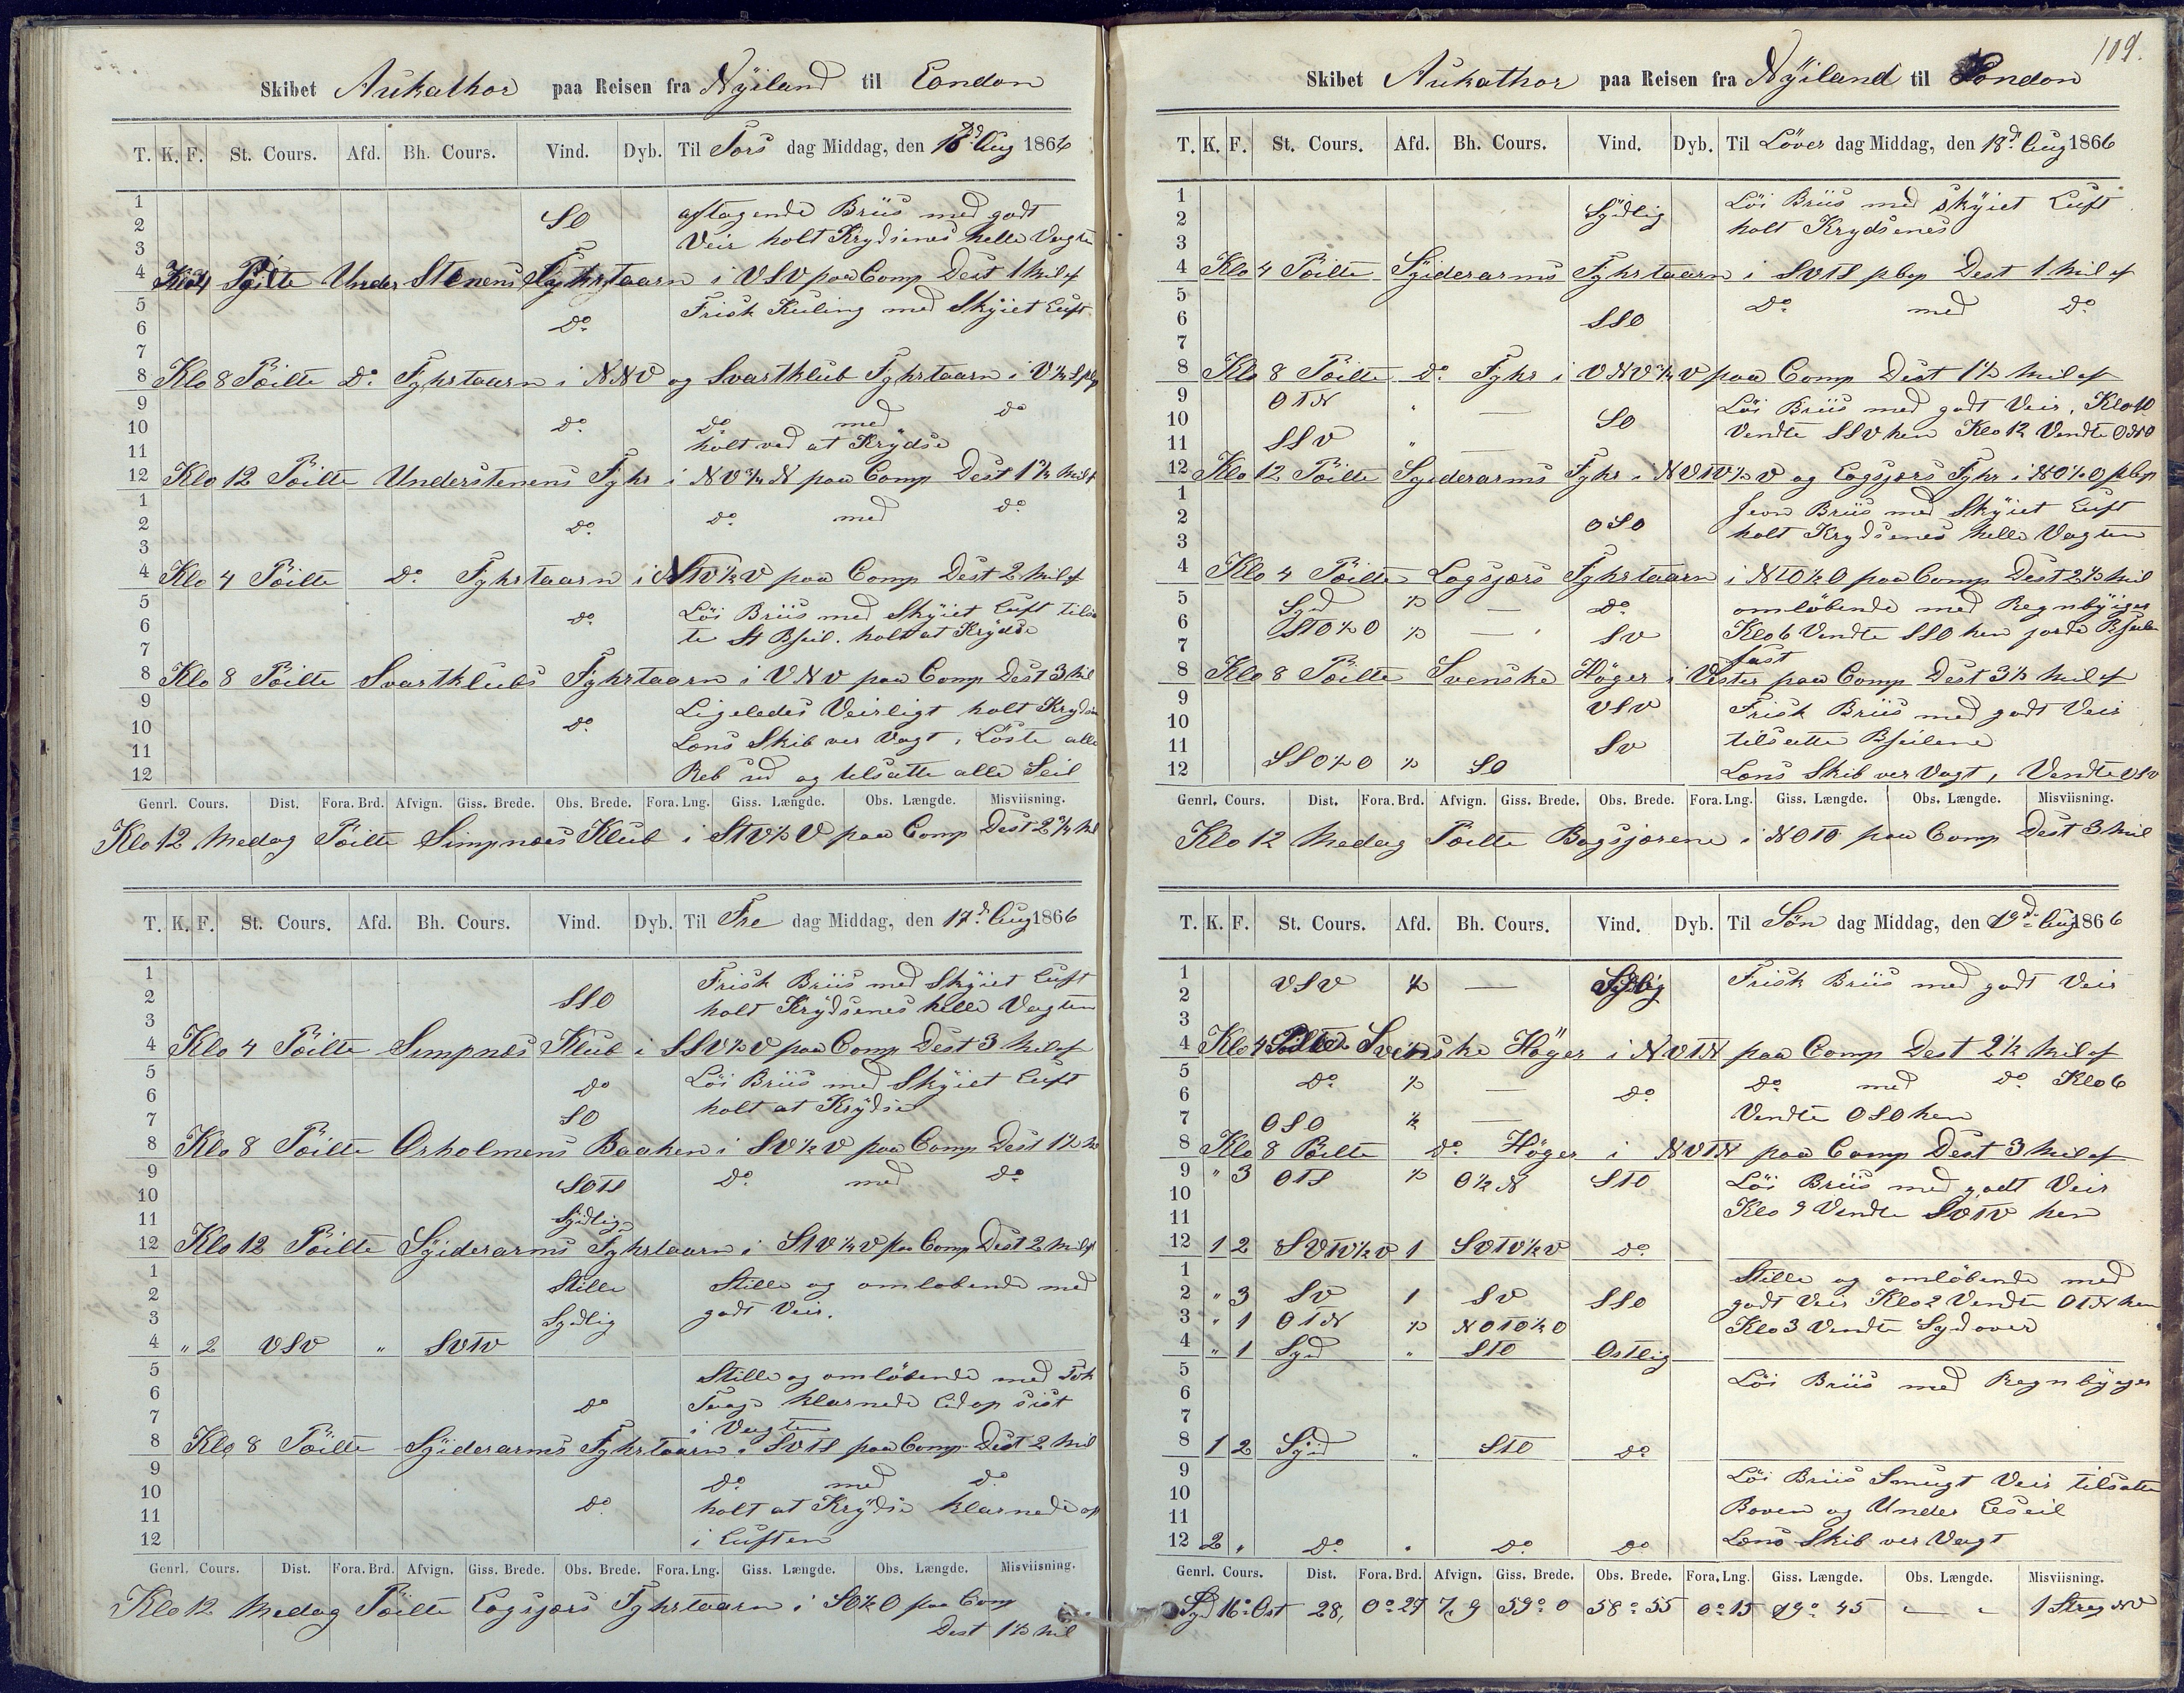 Skibet Aukathor paa Reisen fra Nÿiland til London
T. K. F. St. Cours. Afd. Bh. Cours. Vind. Dyb. Til Tors dag Middag, den 16d Aug 1866
1
2 SO aftagende Briis med godt
3 Veir holt Krydsenes helle Vagten
4 Klo 4 Pöilte Under Stenens Fyhrtaarn i VSV paa Comp Dest 1 Mil af
5 Frisk Kuling med Skÿiet Luft
6 Do
7
8 Klo 8 Pöilte Do Fyhrtaarn i NNV og Svartklub Fyhrtaarn i V½S pbp
9 Do med Do
10 Do
11 holt ved at Krÿdse
12 Klo 12 Pöilte Understenens Fyhr i NV¾N paa Comp Dest 1¾ Mil af
1
2 Do Do med Do
3
4 Klo 4 Pöilte Do Fyhrtaarn i NTV½V paa Comp Dest 2 Mil af
5 Löi Briis med Skÿiet Luft tilsa
6 Do te St Bseil. holt at Krÿdse
7
8 Klo 8 Pöilte Svartklubs Fyhrtaarn i VNV paa Comp Dest 3 Mil
9 Ligeledes Veirligt holt Kryds
10 Do
11 Læns Skib ver Vagt, Löste alle
12 Reb ud og tilsatte alle Seil
Genrl. Cours. Dist. Fora. Brd. Afvign. Giss. Brede. Obs. Brede. Fora. Lng. Giss. Længde. Obs. Længde. Misviisning.
Klo 12 Medag Pöilte Simpnæs Klub i STV½V paa Comp Dest 2¾ Mil
T. K. F. St. Cours. Afd. Bh. Cours. Vind. Dyb. Til Fre dag Middag, den 17d Aug 1866
1 Frisk Briis med Skÿiet Luft
2 SSO
3 holt Krÿdsenes helle Vagten
4 Klo 4 Pöilte Simpnæs Klub i SSV½V paa Comp Dest 3 Mil af
5 Löi Briis med Skÿiet Luft
6 Do
7 SO holt at Krÿdse
8 Klo 8 Pöilte Orholmens Baaken i SV½V paa Comp Dest 1½
9 Do med Do
10 SOTS
11 Sÿdlig
12 Klo 12 Pöilte Sÿiderarms Fyhrtaarn i STV½V paa Comp Dest 2 Mil af
1 Stille Stille og omløbende med
2
3 Sydlig godt Veir.
4 " 2 VSV " SVTV
5 Stille og omlöbende med Tÿk
6 Do Taage klarnede Lid op sist
7 i Vagten
8 Klo 8 Pöilte Sÿiderarms Fyhrtaarn i SVTS paa Comp Dest 2 Mil
9 Do med Do
10 Do holt at Krÿdse klarnede op
11
12 i Luften
Genrl. Cours. Dist. Fora. Brd. Afvign. Giss. Brede. Obs. Brede. Fora. Lng. Giss. Længde. Obs. Længde. Misviisning.
Klo 12 Medag Pöilte Lagsjærs Fyhrtaarn i SO½O paa Comp
Dest 1½ Mil
109.
Skibet Aukathor paa Reisen fra Nÿiland til London
T. K. F. St. Cours. Afd. Bh. Cours. Vind. Dyb. Til Löver dag Middag, den 18d Aug 1866
1 Löi Briis med skÿiet Luft
2 Sÿdlig
3 holt Krydsenes
4 Klo 4 Pöilte Syiderarms Fyhrtaarn i SVTS pbp Dest 1 Mil af
5 Do med Do
6 SSO
7
8 Klo 8 Pöilte Do Fyhr i VNV¾V paa Comp Dest 1½ Mil af
9 OTN " — Löi Briis med godt Veir, Klo 10
10 SO
11 SSV " Vendte SSV hen Klo 12 Vendte ONO
12 Klo 12 Pöilte Syiderarms Fyhr i NVTV½V og Lagsjærs Fyhr i NO½O pbp
1 Jevn Briis med Skÿiet Luft
2 OSO
3 holt Krydsenes helle Vagten
4 Klo 4 Pöilte Lagsjærs Fyhrtaarn i NTO½O paa Comp Dest 2½ Mil
5 Syd ½ — Do omlöbende med Regnbÿiger
6 STO½O ½ — SV Klo 6 Vendte SSO hen jorde Bseilene
7 fast
8 Klo 8 Pöilte Svenske Höger i Vester paa Comp Dest 3½ Mil af
9 VSV Frisk Briis med godt Veir
10
11 SV tilsatte Bseilene
12 SSO½O ½ SO Læns Skib ver Vagt, Vendte VSV
Genrl. Cours. Dist. Fora. Brd. Afvign. Giss. Brede. Obs. Brede. Fora. Lng. Giss. Længde. Obs. Længde. Misviisning.
Klo 12 Medag Pöilte Bogsjærene i NOTO paa Comp Dest 3 Mil
T. K. F. St. Cours. Afd. Bh. Cours. Vind. Dyb. Til Sön dag Middag, den 19d Aug 1866
1 VSV ½ — Sydlig Frisk Briis med godt Veir
2
3
4 Klo 4 Pöilte Svenske Höger i NVTN paa Comp Dest 2½ Mil af
5 Do ½ — Do med Do Klo 6
6 Do
7 OSO ½ — Vendte OSO hen
8 Klo 8 Pöilte Do Höger i NVTN paa Comp Dest 3 Mil af
9 " 3 OTS ½ O½N STO Löi Briis med godt Veir
10
11 Klo 9 Vendte SVTV hen
12 1 2 SVTV½V 1 SVTV½V Do
1 Stille og omlöbende med
2 " 3 SV 1 SV SSO godt Veir Klo 2 Vendte OTN hen
3 " 1 OTN ½ NOTO½O Klo 3 Vendte Syd over
4 " 1 Syd " STO Ostlig
5 Löi Briis med Regnbÿger
6
7
8 1 2 Sÿd " STO Do
9 Löi Briis Smugt Veir tilsatte
10
11 Boven og Under Leseil
12 2 " Do " Do Do Læns Skib ver Vagt
Genrl. Cours. Dist. Fora. Brd. Afvign. Giss. Brede. Obs. Brede. Fora. Lng. Giss. Længde. Obs. Længde. Misviisning.
Syd 16° Ost 28, 0°27 7,9 59°0 58°55 0°15 19°45 — " 1 Streg NV